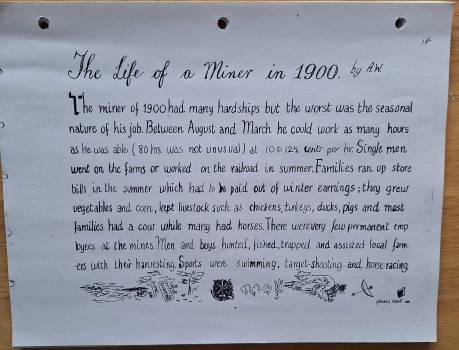 14
The Life of a Miner in 1900. by A.W.
The miner of 1900 had many hardships but the worst was the seasonal
nature of his job. Between August and March he could work as many hours
as he was able (80 hrs. was not unusual) at 10 to 12½ cents per hr. Single men
went on the farms or worked on the railroad in summer. Families ran up store
bills in the summer which had to be paid out of winter earnings; they grew
vegetables and corn, kept livestock such as chickens, turkeys, ducks, pigs and most
families had a cow while many had horses. There were very few permanent emp
loyees at the mines. Men and boys hunted, fished, trapped, and assisted local farm
ers with their harvesting. Sports were swimming, target-shooting and horse-racing.
please read on